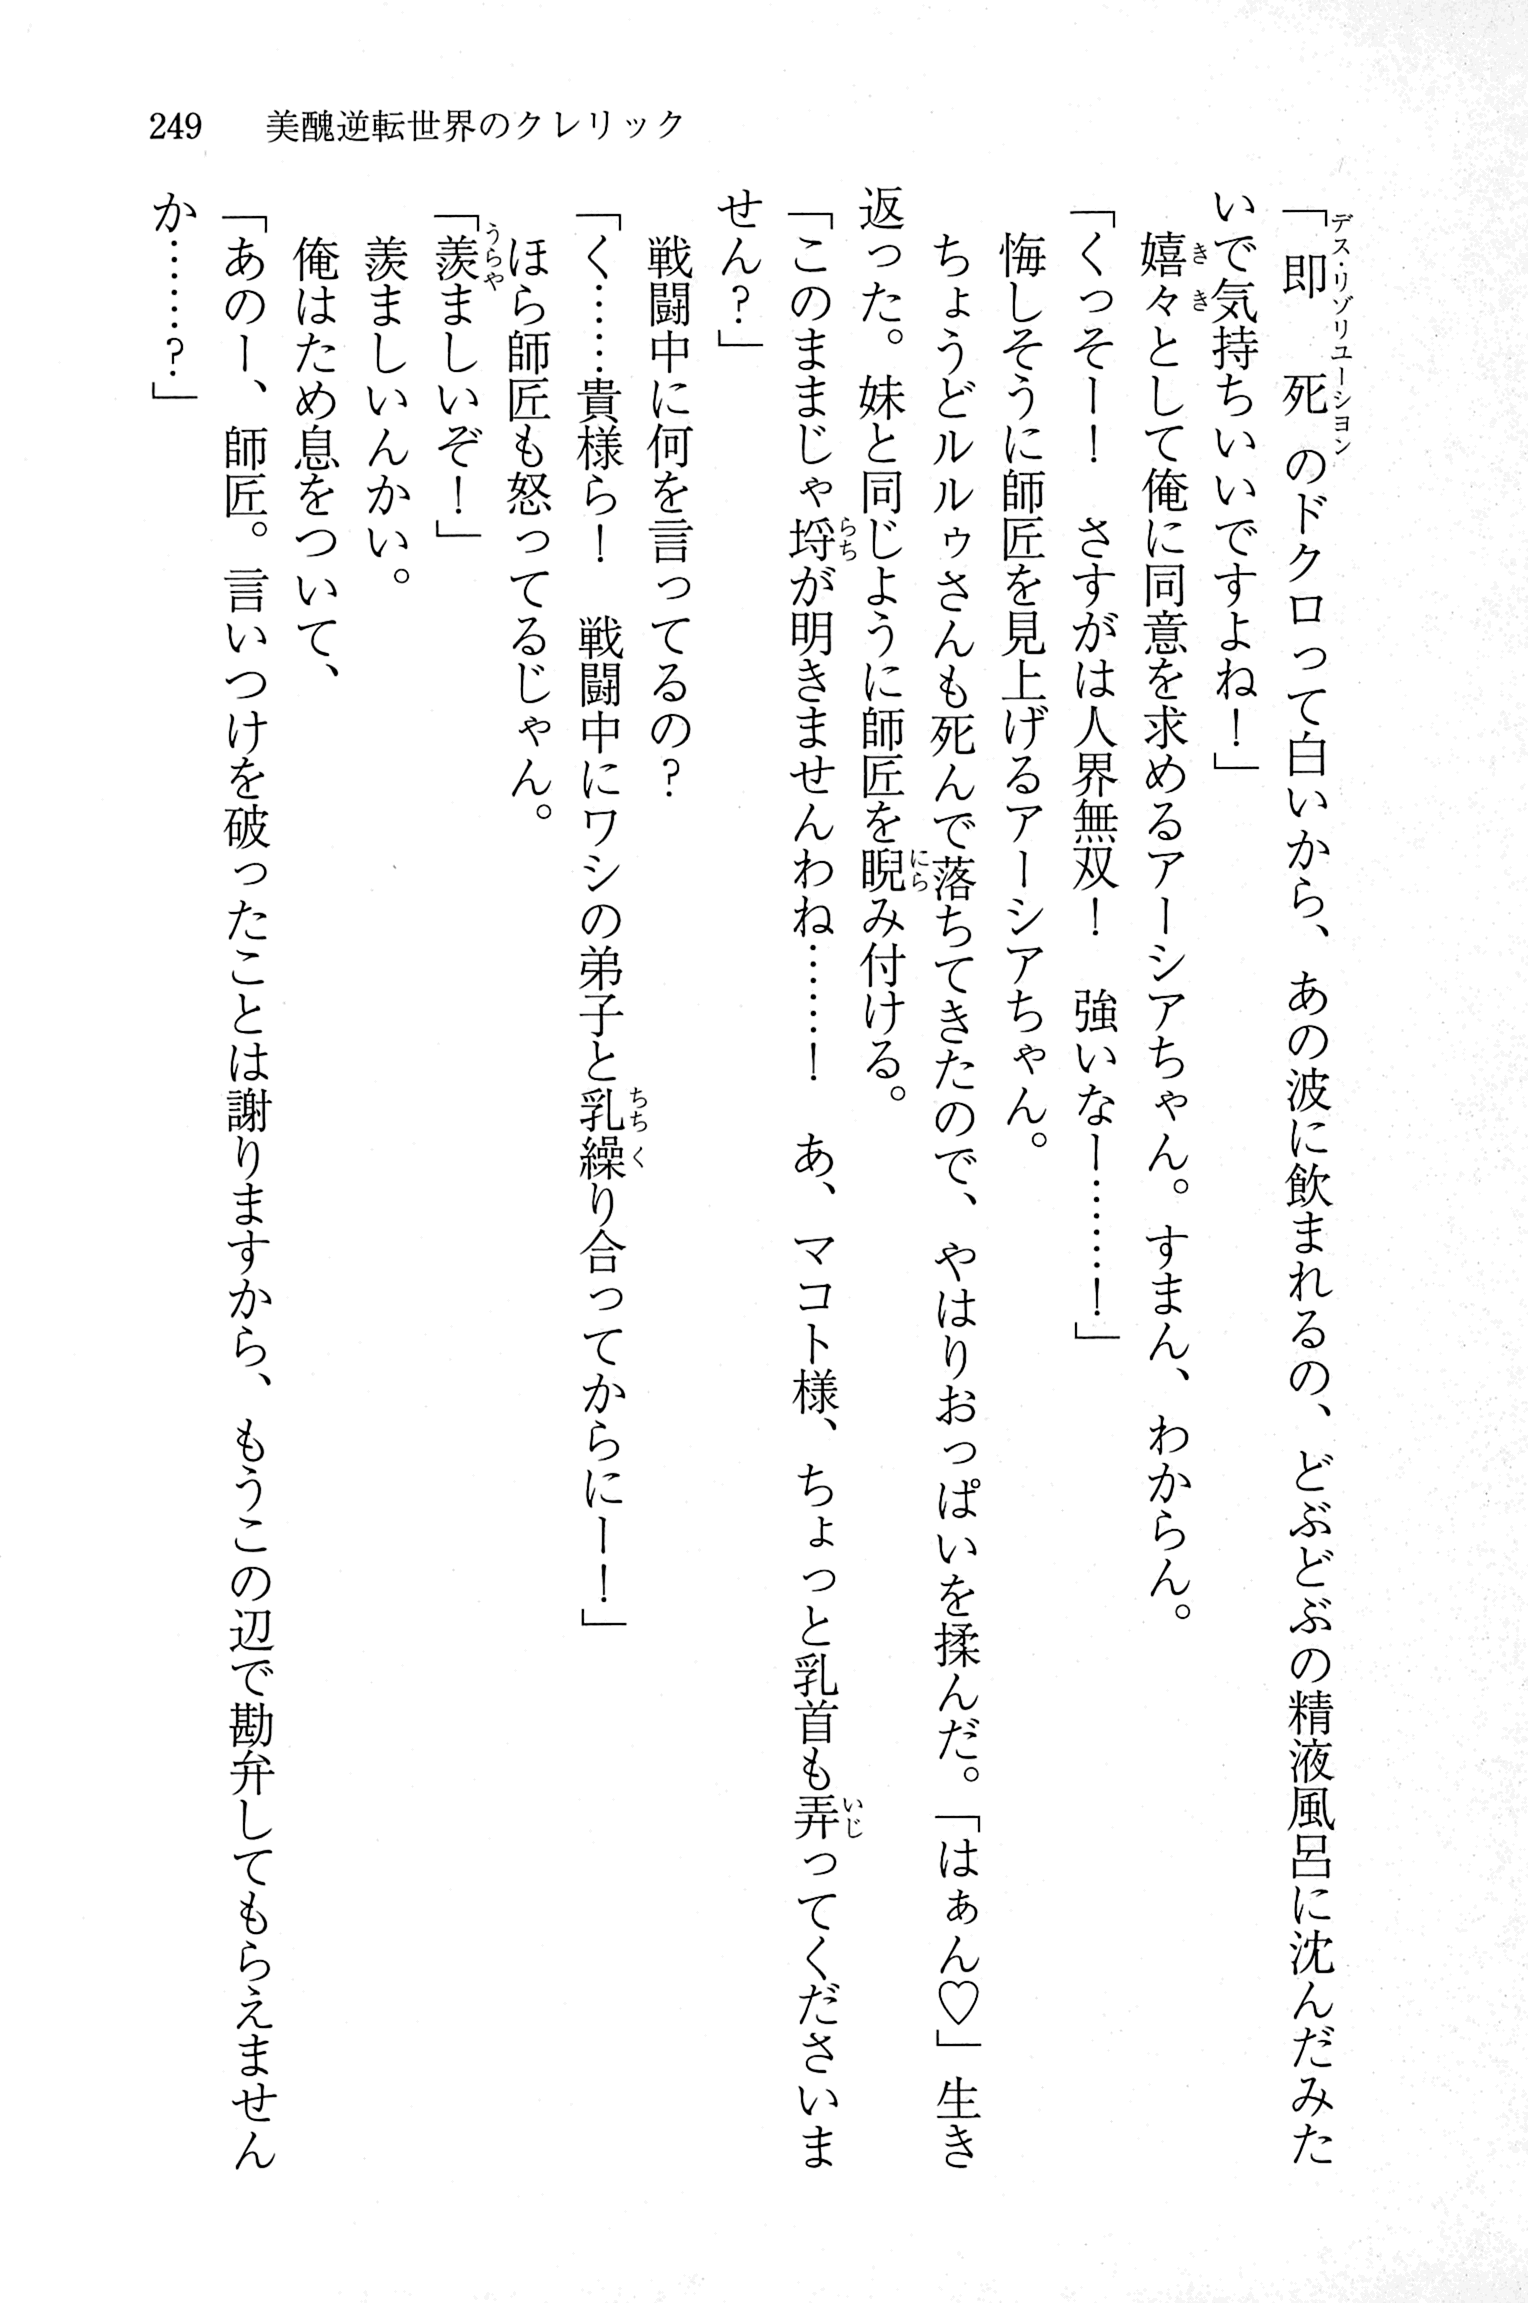 249　美醜逆転世界のクレリック
「即死のドクロって白いから、あの波に飲まれるの、どぶどぶの精液風呂に沈んだみた
デス・リゾリューション
いで気持ちいいですよね！」
嬉々として俺に同意を求めるアーシアちゃん。すまん、わからん。
きき
「くっそー！　さすがは人界無双！　強いなー……！」
悔しそうに師匠を見上げるアーシアちゃん。
ちょうどルルゥさんも死んで落ちてきたので、やはりおっぱいを揉んだ。「はぁん♡」生き
返った。妹と同じように師匠を睨み付ける。
にら
「このままじゃ埒が明きませんわね……！　あ、マコト様、ちょっと乳首も弄ってくださいま
らち
いじ
せん？」
戦闘中に何を言ってるの？
「く……貴様ら！　戦闘中にワシの弟子と乳繰り合ってからにー！」
ちちく
ほら師匠も怒ってるじゃん。
「羨ましいぞ！」
うらや
羨ましいんかい。
俺はため息をついて、
「あのー、師匠。言いつけを破ったことは謝りますから、もうこの辺で勘弁してもらえません
か……？」